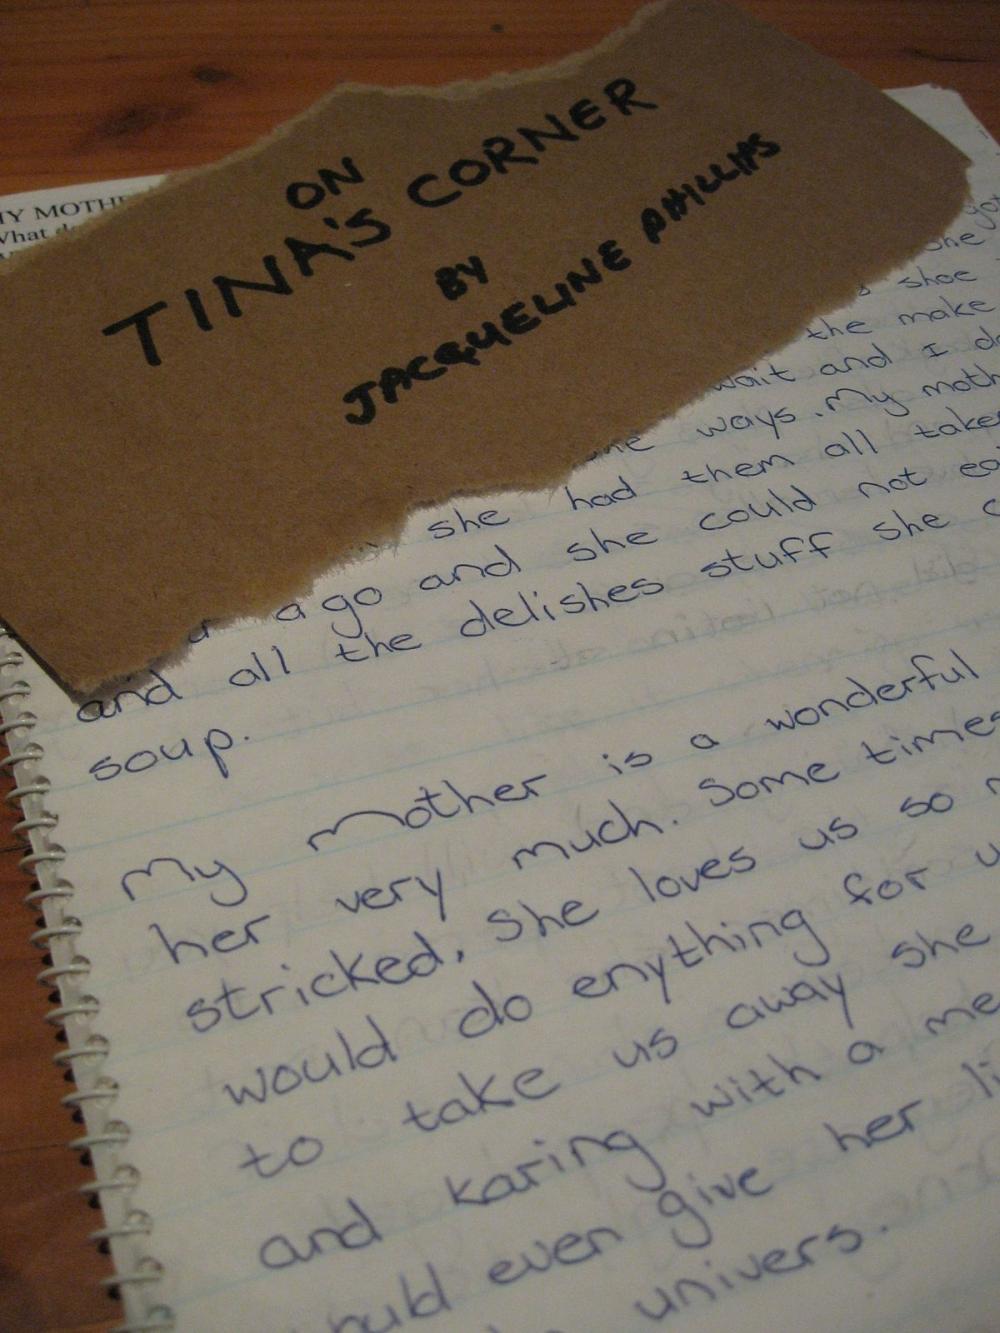 ON
TINA'S CORNER
BY
JACQUELINE PHILLIPS
MY MOTHE
What do
she
shoe
the make
wait and I do
ways. My moth
she had them all taken
ago and she could not eat
and all the delishes stuff she c
soup.
My mother is a wonderful
her very much. Some times
stricked. She loves us so m
would do enything for u
to take us away she
and karing with a me
ould even give her li
univers.